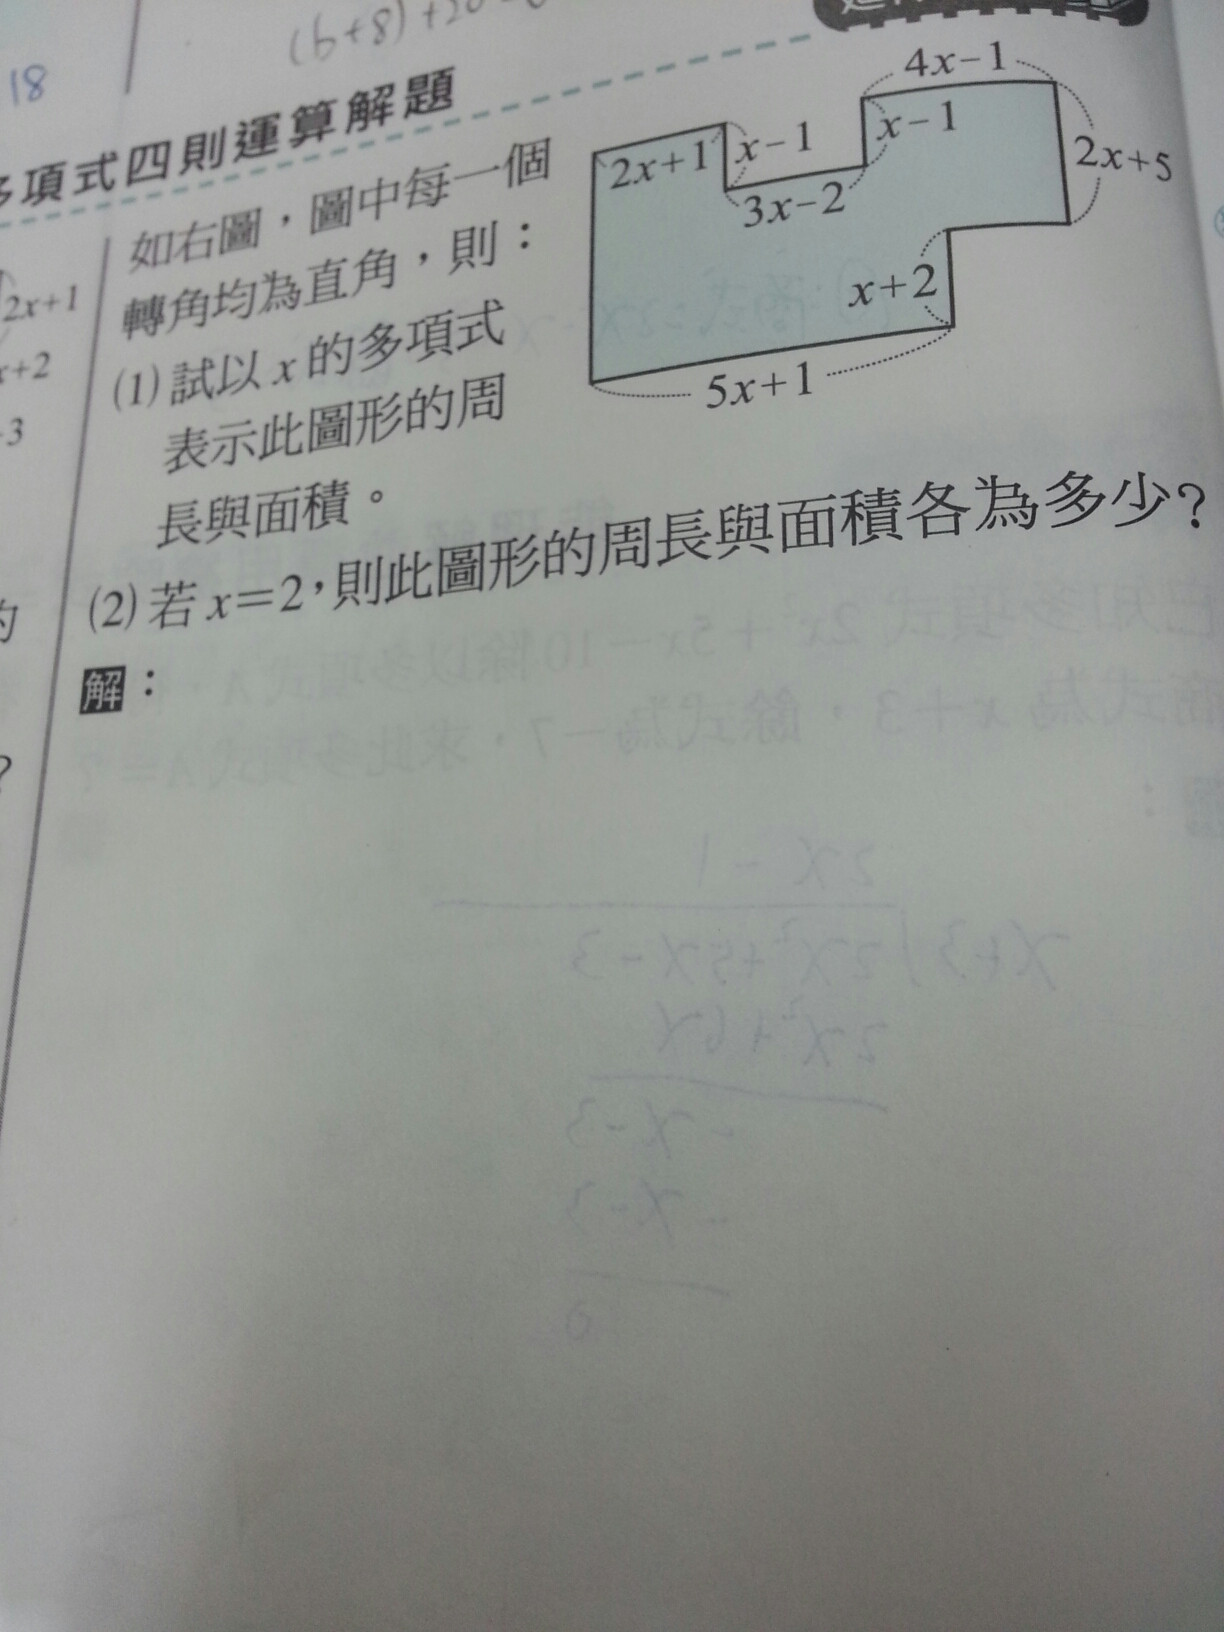 (b+8)+20
18
多項式四則運算解題
2x+1
x+2
3
如右圖，圖中每一個
轉角均為直角，則：
(1)試以x的多項式
表示此圖形的周
長與面積。
4x－1
2x+1
x－1
x－1
2x+5
3x－2
x+2
5x+1
(2)若x＝2，則此圖形的周長與面積各為多少？
解：
的
？